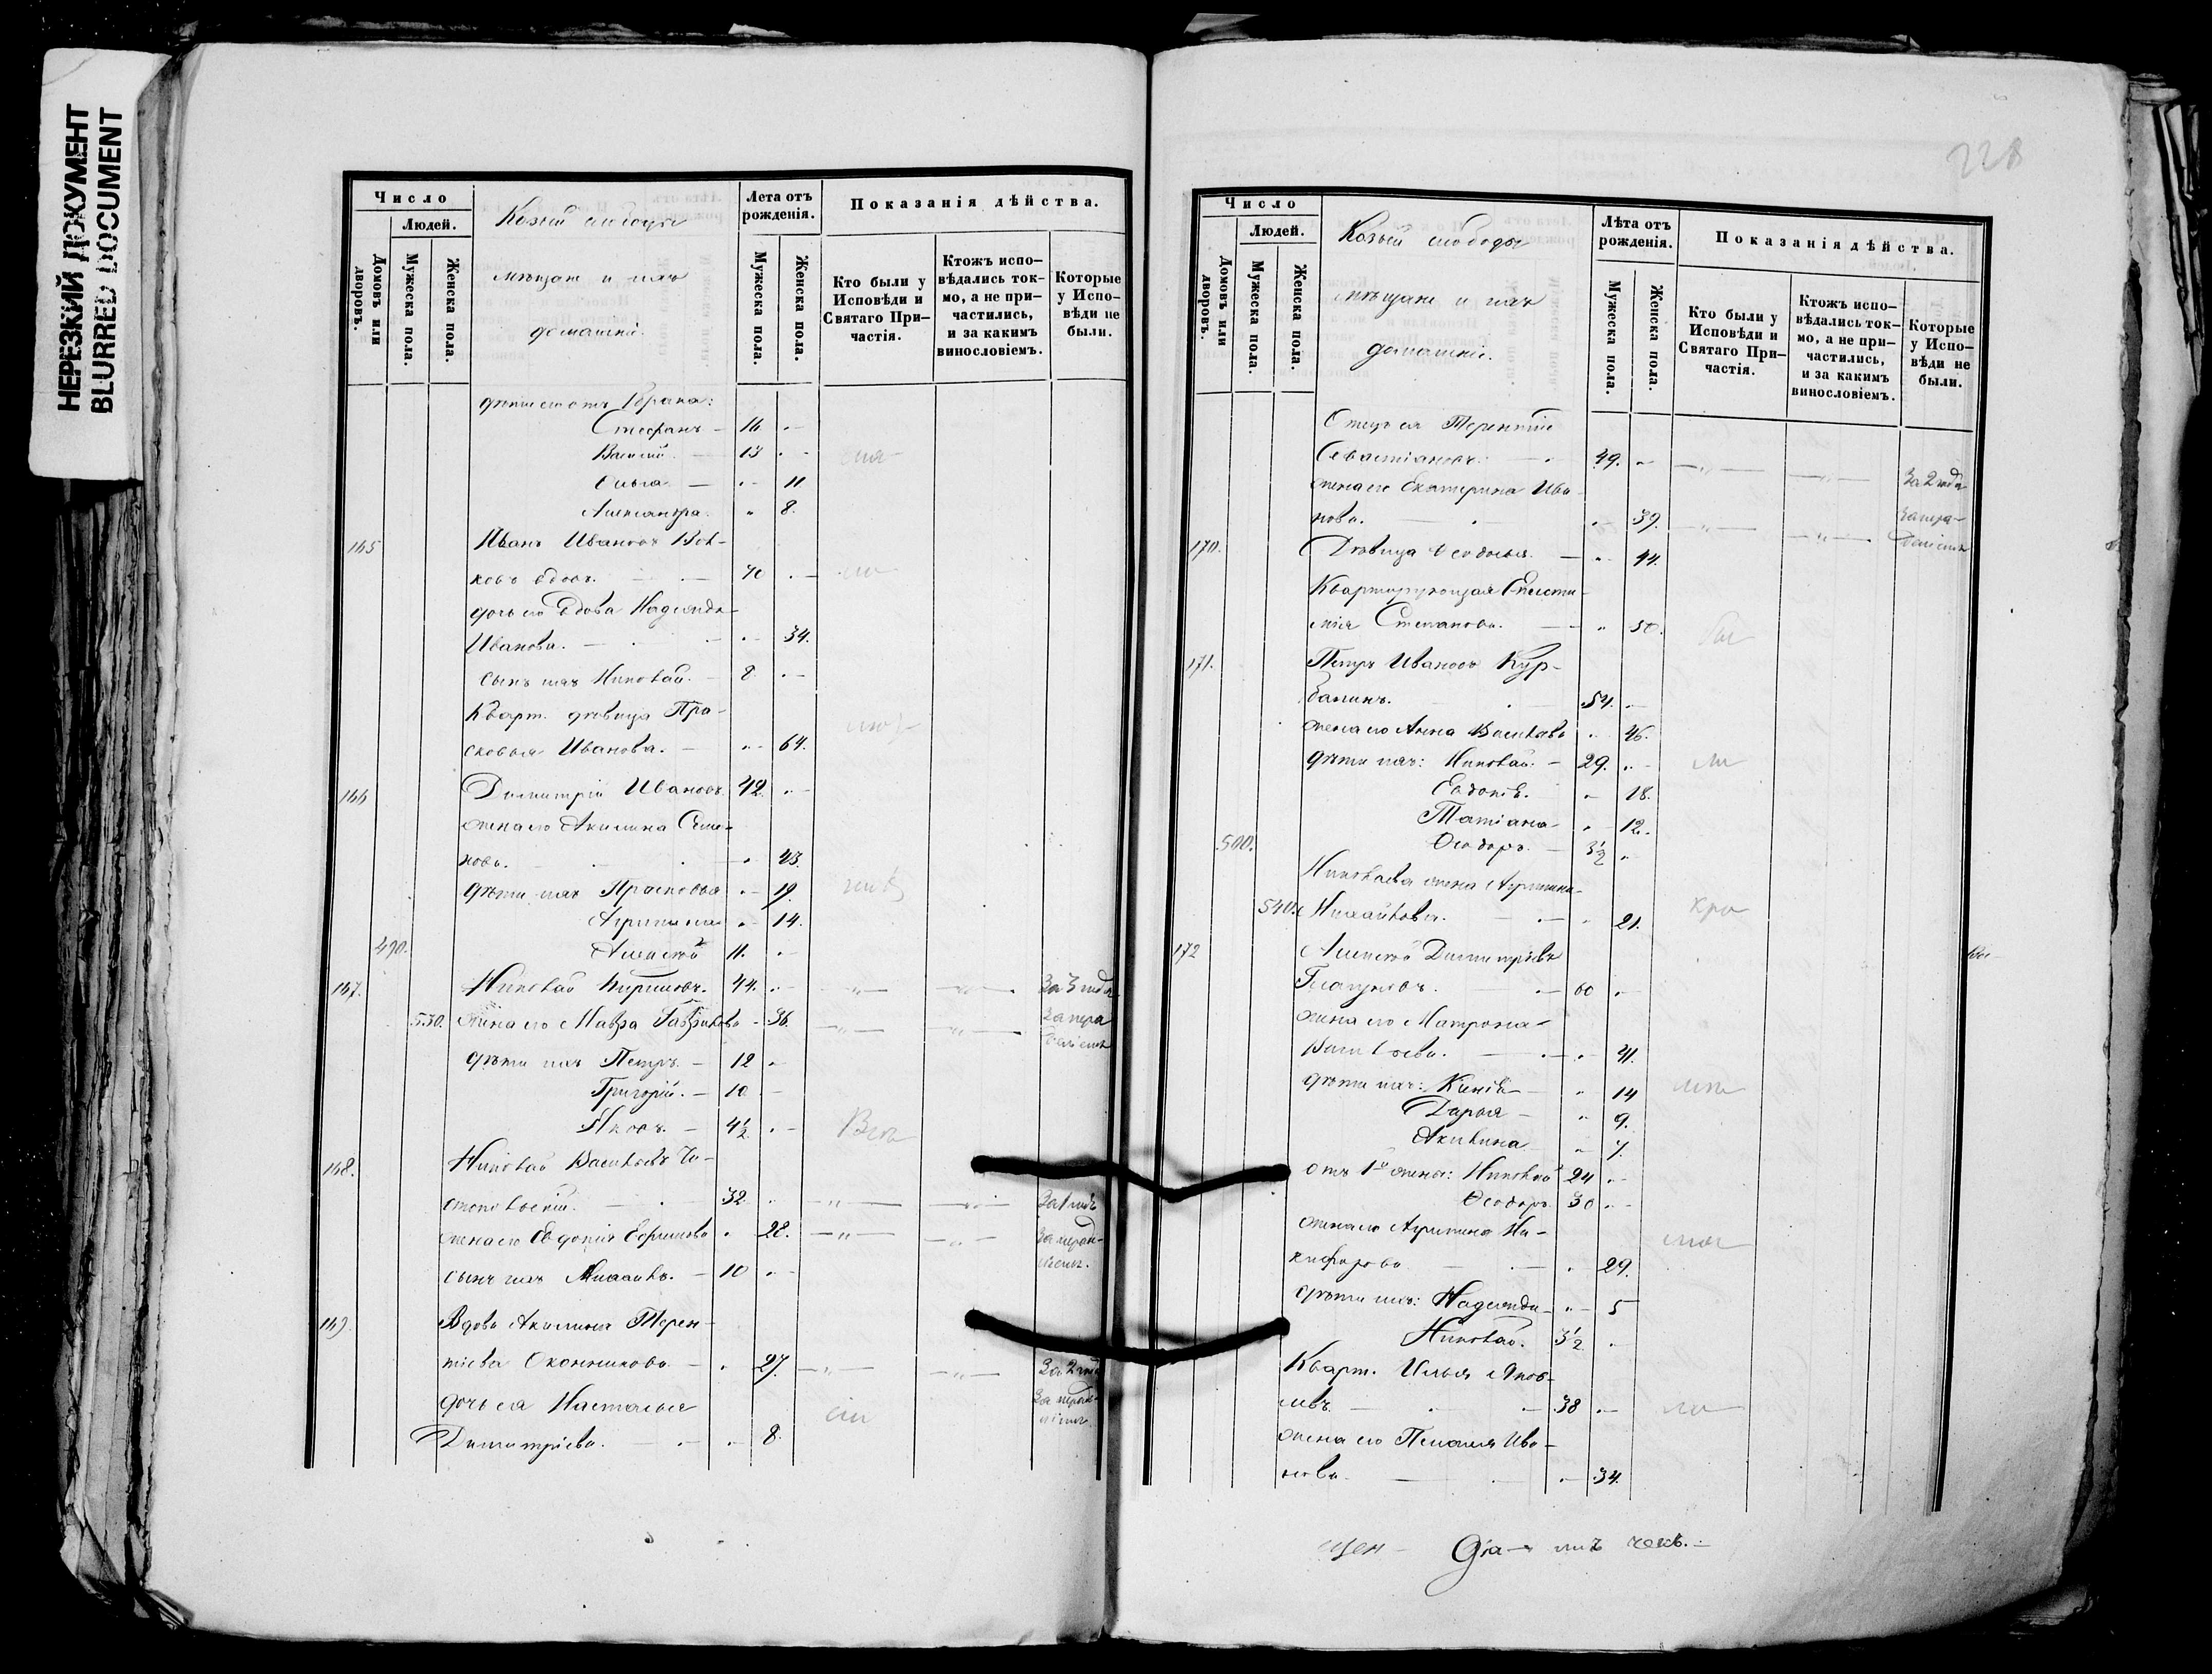 НЕРЕЗКИЙ ДОКУМЕНТ
BLURRED DOCUMENT
Число
Людей.
Домовъ или дворовъ.
Мужеска пола.
Женска пола.
Козьей слободы
мѣщане и ихъ
домашніе.
Лета отъ рожденія.
Мужеска пола.
Женска пола.
Показанія дѣйства.
Кто были у Исповѣди и Святаго Причастія.
Ктожъ исповѣдались токмо, а не причастились, и за какимъ винословіемъ.
Которые у Исповѣди не были.
дѣти его отъ брака:
Стефанъ 16
Василій 13
Ольга 11
Александра 8.
165 Иванъ Ивановъ Вол-
ковъ вдовъ. 70
дочь его вдова Надежда
Иванова. 34.
сынъ ея Николай. 8
Кварт. дѣвица Пра-
сковья Иванова. 64.
166 Димитрій Ивановъ 42
жена его Акилина Семе-
нова. 43
дѣти ихъ Прасковья 19.
Агрипина 14.
490. Алексѣй 11.
167. Николай Кириловъ. 44. За 3 года
530. жена его Мавра Гаврилова 36. За нера
дѣніемъ
дѣти ихъ Петръ 12
Григорій. 10
Яковъ. 4½
168. Николай Васильевъ
32 За 1 годъ
жена его Евдокія Ефимова 28. За нерад-
ніемъ.
сынъ ихъ Михаилъ. 10
169. Вдова Акилина Терен-
тіева Оконишникова 27. За 2 года
дочь ея Наталья За нерад-
ніемъ
Димитріева. 8.
228
Число
Людей.
Домовъ или дворовъ.
Мужеска пола.
Женска пола.
Козьей слободы
мѣщане и ихъ
домашніе.
Лѣта отъ рожденія.
Мужеска пола.
Женска пола.
Показанія дѣйства.
Кто были у Исповѣди и Святаго Причастія.
Ктожъ исповѣдались токмо, а не причастились, и за какимъ винословіемъ.
Которые у Исповѣди не были.
Отецъ ея Терентій
Севастіановъ. 49. За 2 года
жена его Екатерина Ива
нова. 39. За нера-
дѣніемъ
170. Дѣвица Ѳеодосья 44.
Квартирующая Еписти-
мія Степанова. 50.
171. Петръ Ивановъ Кур-
банинъ. 54.
жена его Анна Васильева 46.
дѣти ихъ: Николай. 29.
Евдокія. 18.
Татіана 12.
500. Ѳеодоръ. 3½
Николаева жена Агрипина
540. Михайлова. 21.
172 Алексѣй Димитріевъ
60
жена его Матрона
Васильева. 41.
дѣти ихъ: 14
Дарья 9.
Акилина 7.
отъ 1й жены: Николай 24
Ѳеодоръ 30
жена его Агрипина Ни-
кифорова 29.
дѣти ихъ: Надежда 5
Николай. 3½
Кварт. Илья Яков-
левъ 38
жена его Пелагея Ива-
нова. 34.